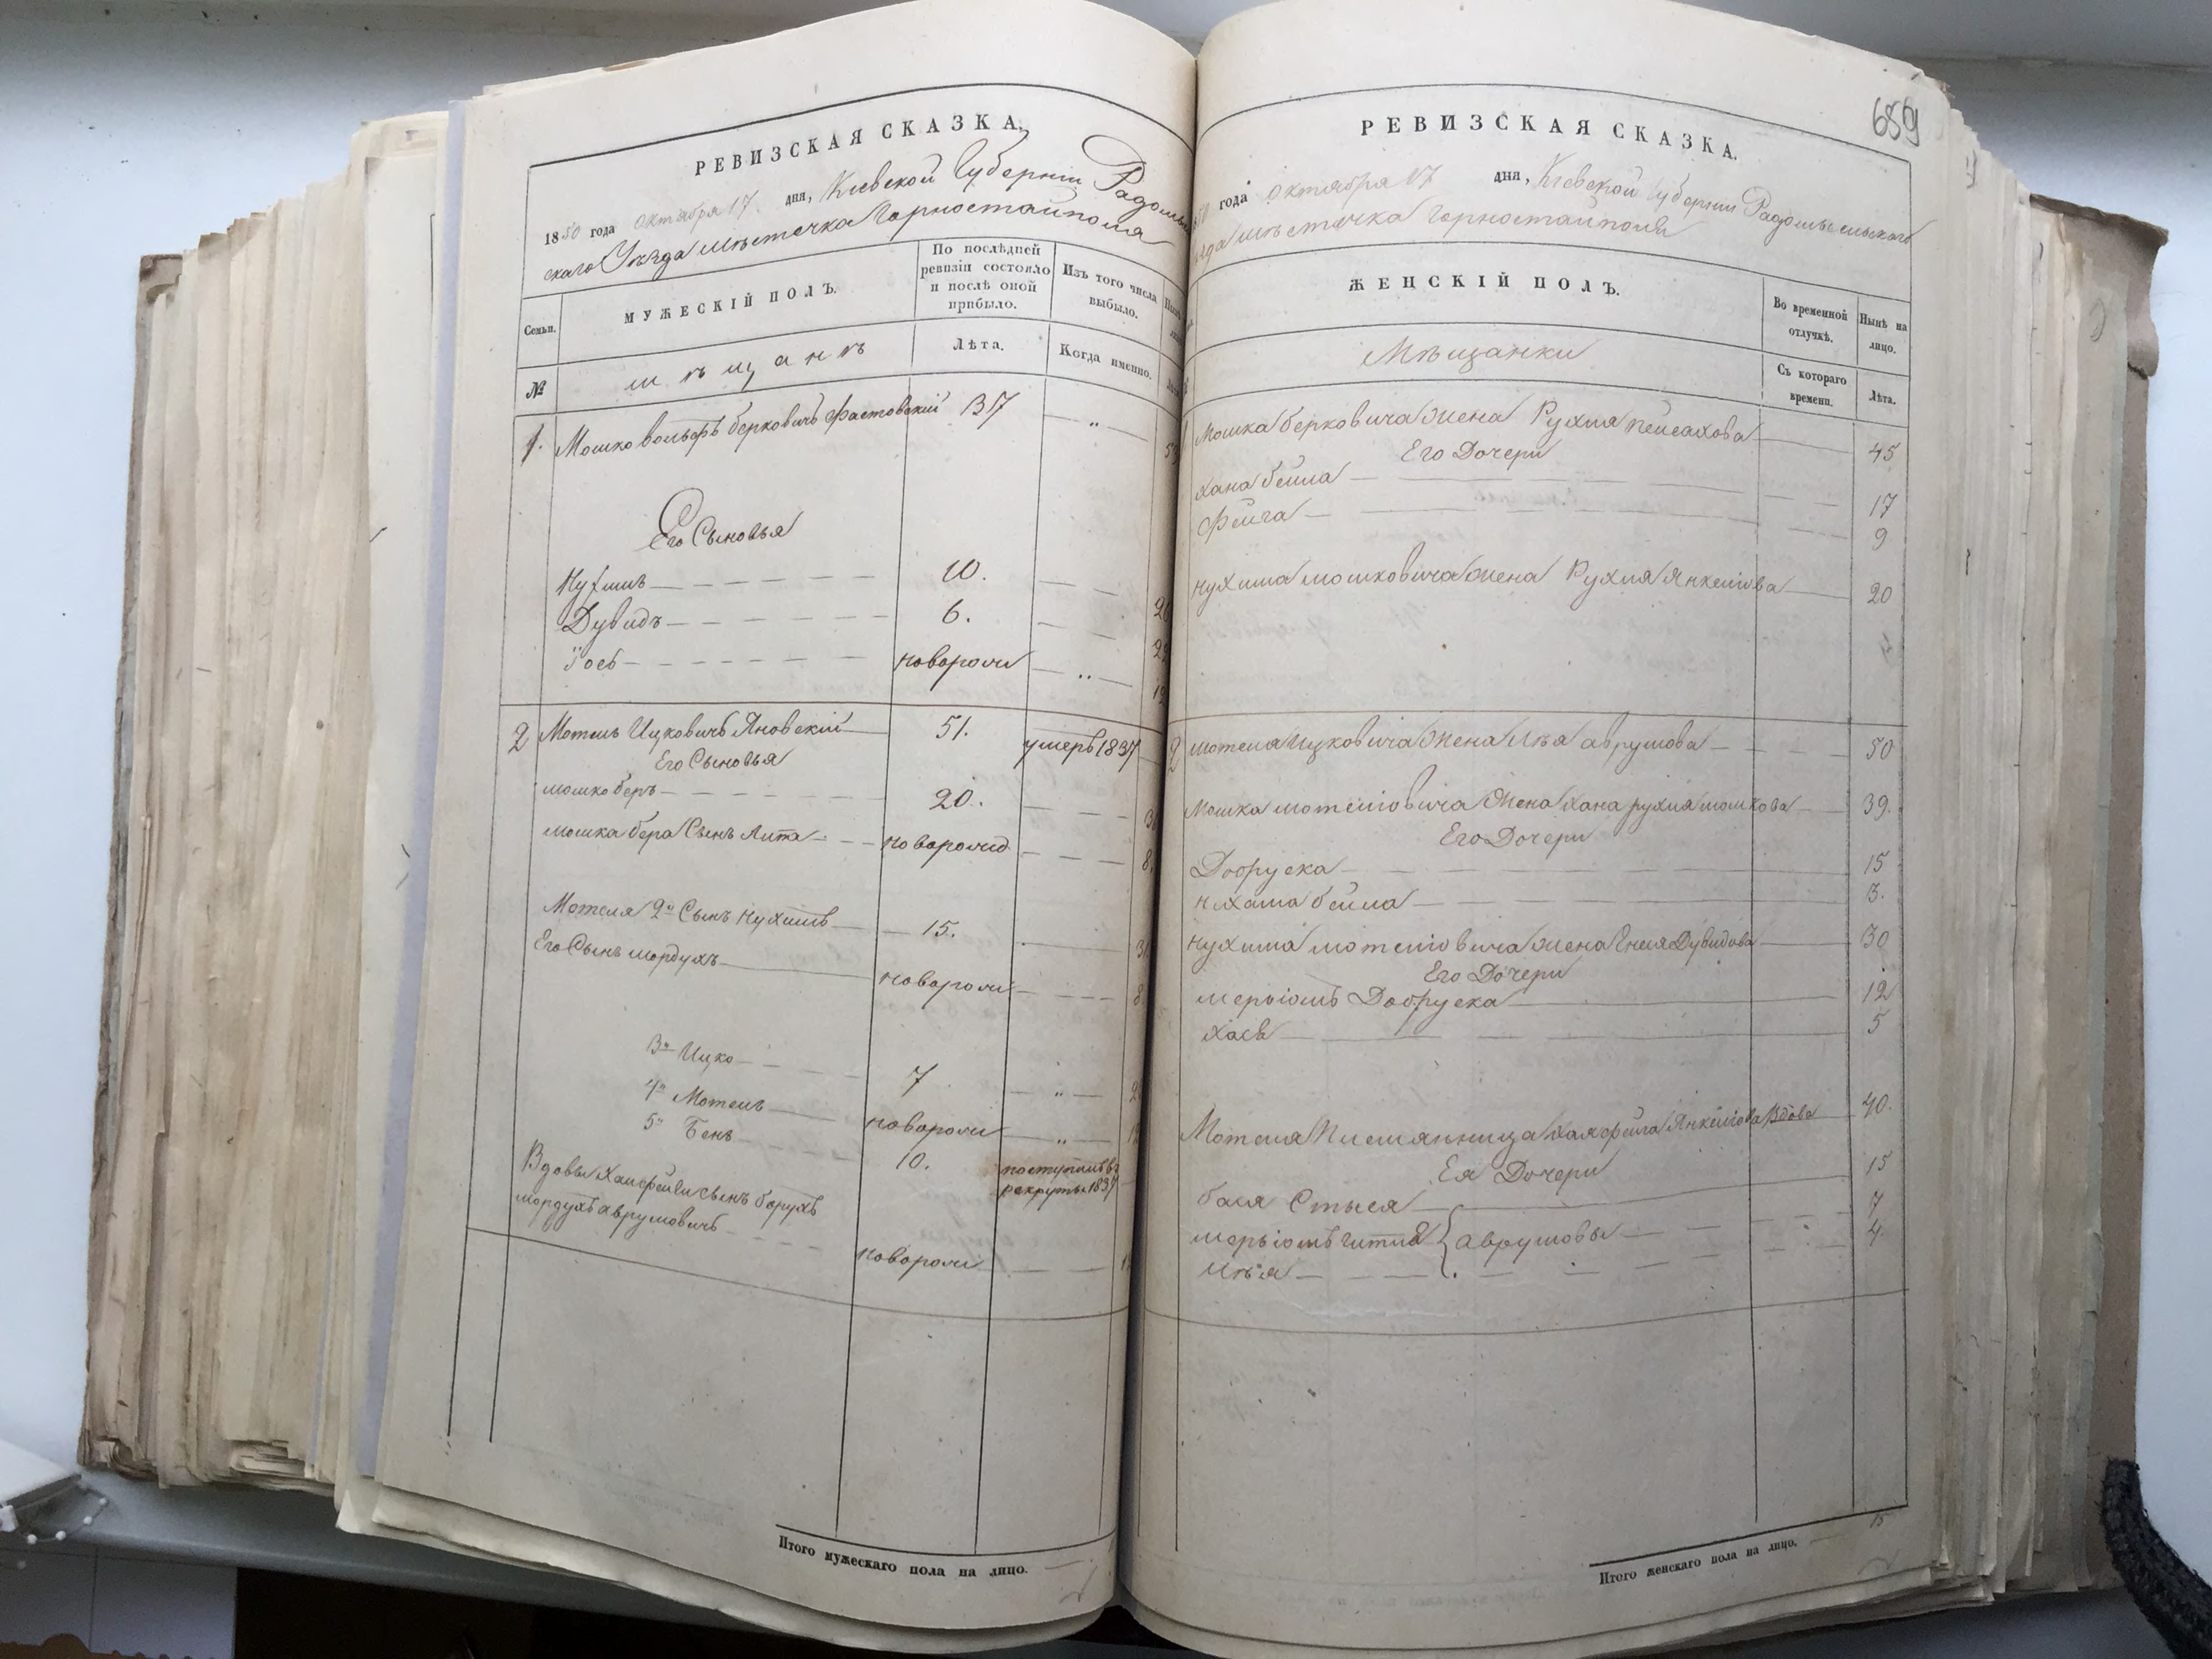 РЕВИЗСКАЯ СКАЗКА.
1850 года октября 17. дня, Кіевской Губерніи Радомысль
скаго Уѣзда мѣстечка Горностайполя
Семьи.
МУЖЕСКІЙ ПОЛЪ.
По послѣдней ревизіи состояло и послѣ оной прибыло.
Изъ того числа выбыло.
№
мѣщанъ
Лѣта.
Когда именно.
1. Мошко Вольфъ Берковичъ Фастовскій 37 „
Его Сыновья
Нухимъ 10.
Дувидъ 6.
Іось новорож „
2 Мотель Ицковичъ Яновскій 51. умеръ 1837
Его Сыновья
Мошко Беръ 20.
Мошка Бера Сынъ новорожд 8.
Мотеля 2й Сынъ Нухимъ 15. 31
Его Сынъ Мордухъ новорож 8
3й Ицко 7 „
4й Мотель новорож „
5й Бень 10. поступилъ въ рекруты 1837
Вдовы Хаи Фейги сынъ Борухъ
Мордухъ Аврумовичъ новорож
Итого мужескаго пола на лицо.
659
РЕВИЗСКАЯ СКАЗКА.
года октября 17 дня, Кіевской Губерніи Радомысльскаго
мѣстечка Горностайполя
ЖЕНСКІЙ ПОЛЪ.
Во временной отлучкѣ.
Нынѣ на лицо.
Мѣщанки
Съ котораго времени.
Лѣта.
Мошка Берковича Жена Рухля Пейсахова 45
Его Дочери
Хана Бейла 17
Фейга 9
Нухима Мошковича Жена Рухля Янкелюва 20
2 Мотеля Ицковича Жена Лѣя Аврумова 50
Мошка Мотелювича Жена Хана Рухля Мошкова 39.
Его Дочери
Добруска 15
Нехама Бейла 3.
Нухима Мотелювича Жена Дувидова 30
Его Дочери
Мерьіомъ Добруска 12
Хася 5
Мотеля Племянница Хая Фейга Янкелюва Вдова 40.
Ея Дочери
Бася Стыся 15
Мерьіомъ Гитля } Аврумовы 7
Лѣя 4
15
Итого женскаго пола на лицо.